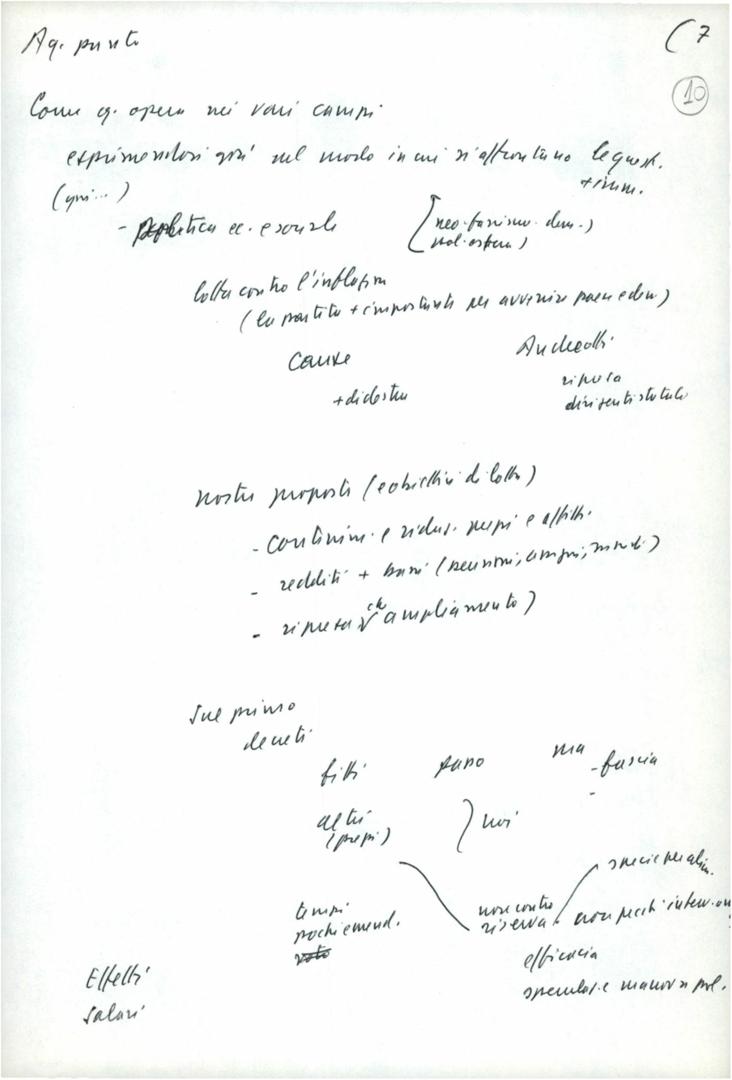 Aq. punto
(7
10
Come q. opera nei vari campi
esprimendosi già nel modo in cui si affrontano le quest.
+ imm.
(qui...)
- politica ec. e sociale
(neo-fascismo - dem.)
pol. estera)
lotta contro l'inflazion
(la partita + importante per avvenire paese e dem)
Cause
Andreotti
+ di destra
ripresa
dirigenti statali
nostre proposte (e obiettivi di lotta)
- contenim. e riduz. prezzi e affitti.
- redditi + bassi (pensioni, assegni,
- ripresa che ampliamento)
Sue primo
decreti
fitti
passo
ma
- fascia
-
altri
(prezzi)
noi
specie per alim.
tempi
pochi emend.
voto
non contro
riserva
non pochi interv.
efficacia
speculaz. e manovre pol.
Effetti
Salari